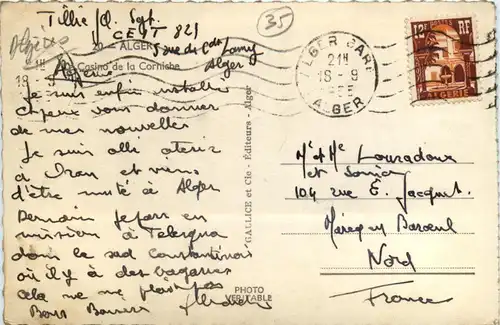 35
CEST 821
20 - ALGER
5 rue du Cdt Lamy
Casino de la Corniche
Alger
Algérie
Je suis enfin installé
et peux vous donner
de mes nouvelles
Je suis allé
à Oran et viens
d'être muté à Alger
Demain je pars en
mission à Telergma
dans le sud Constantinois
où il y a des bagarres
cela ne me plait pas
Bons Baisers
GALLICE et Cie - Editeurs - Alger
PHOTO
VERITABLE
ALGER GARE
21H
18 - 9
ALGER
12F RF
ALGERIE
Mr et Mme Louradour
104 rue E. Jacquet
Marcq en Baroeul
Nord
France